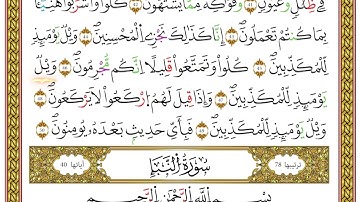 فِي ظِلَٰلٖ وَعُيُونٖ ٤١ وَفَوَٰكِهَ مِمَّا يَشۡتَهُونَ ٤٢ كُلُواْ وَٱشۡرَبُواْ هَنِيٓـَٔۢا
بِمَا كُنتُمۡ تَعۡمَلُونَ ٤٣ إِنَّا كَذَٰلِكَ نَجۡزِي ٱلۡمُحۡسِنِينَ ٤٤ وَيۡلٞ يَوۡمَئِذٖ
لِّلۡمُكَذِّبِينَ ٤٥ كُلُواْ وَتَمَتَّعُواْ قَلِيلًا إِنَّكُم مُّجۡرِمُونَ ٤٦ وَيۡلٞ
يَوۡمَئِذٖ لِّلۡمُكَذِّبِينَ ٤٧ وَإِذَا قِيلَ لَهُمُ ٱرۡكَعُواْ لَا يَرۡكَعُونَ ٤٨
وَيۡلٞ يَوۡمَئِذٖ لِّلۡمُكَذِّبِينَ ٤٩ فَبِأَيِّ حَدِيثِۭ بَعۡدَهُۥ يُؤۡمِنُونَ ٥٠
ترتيبها 78 سُورَةُ النَّبَإِ آياتها 40
بِسۡمِ ٱللَّهِ ٱلرَّحۡمَٰنِ ٱلرَّحِيمِ